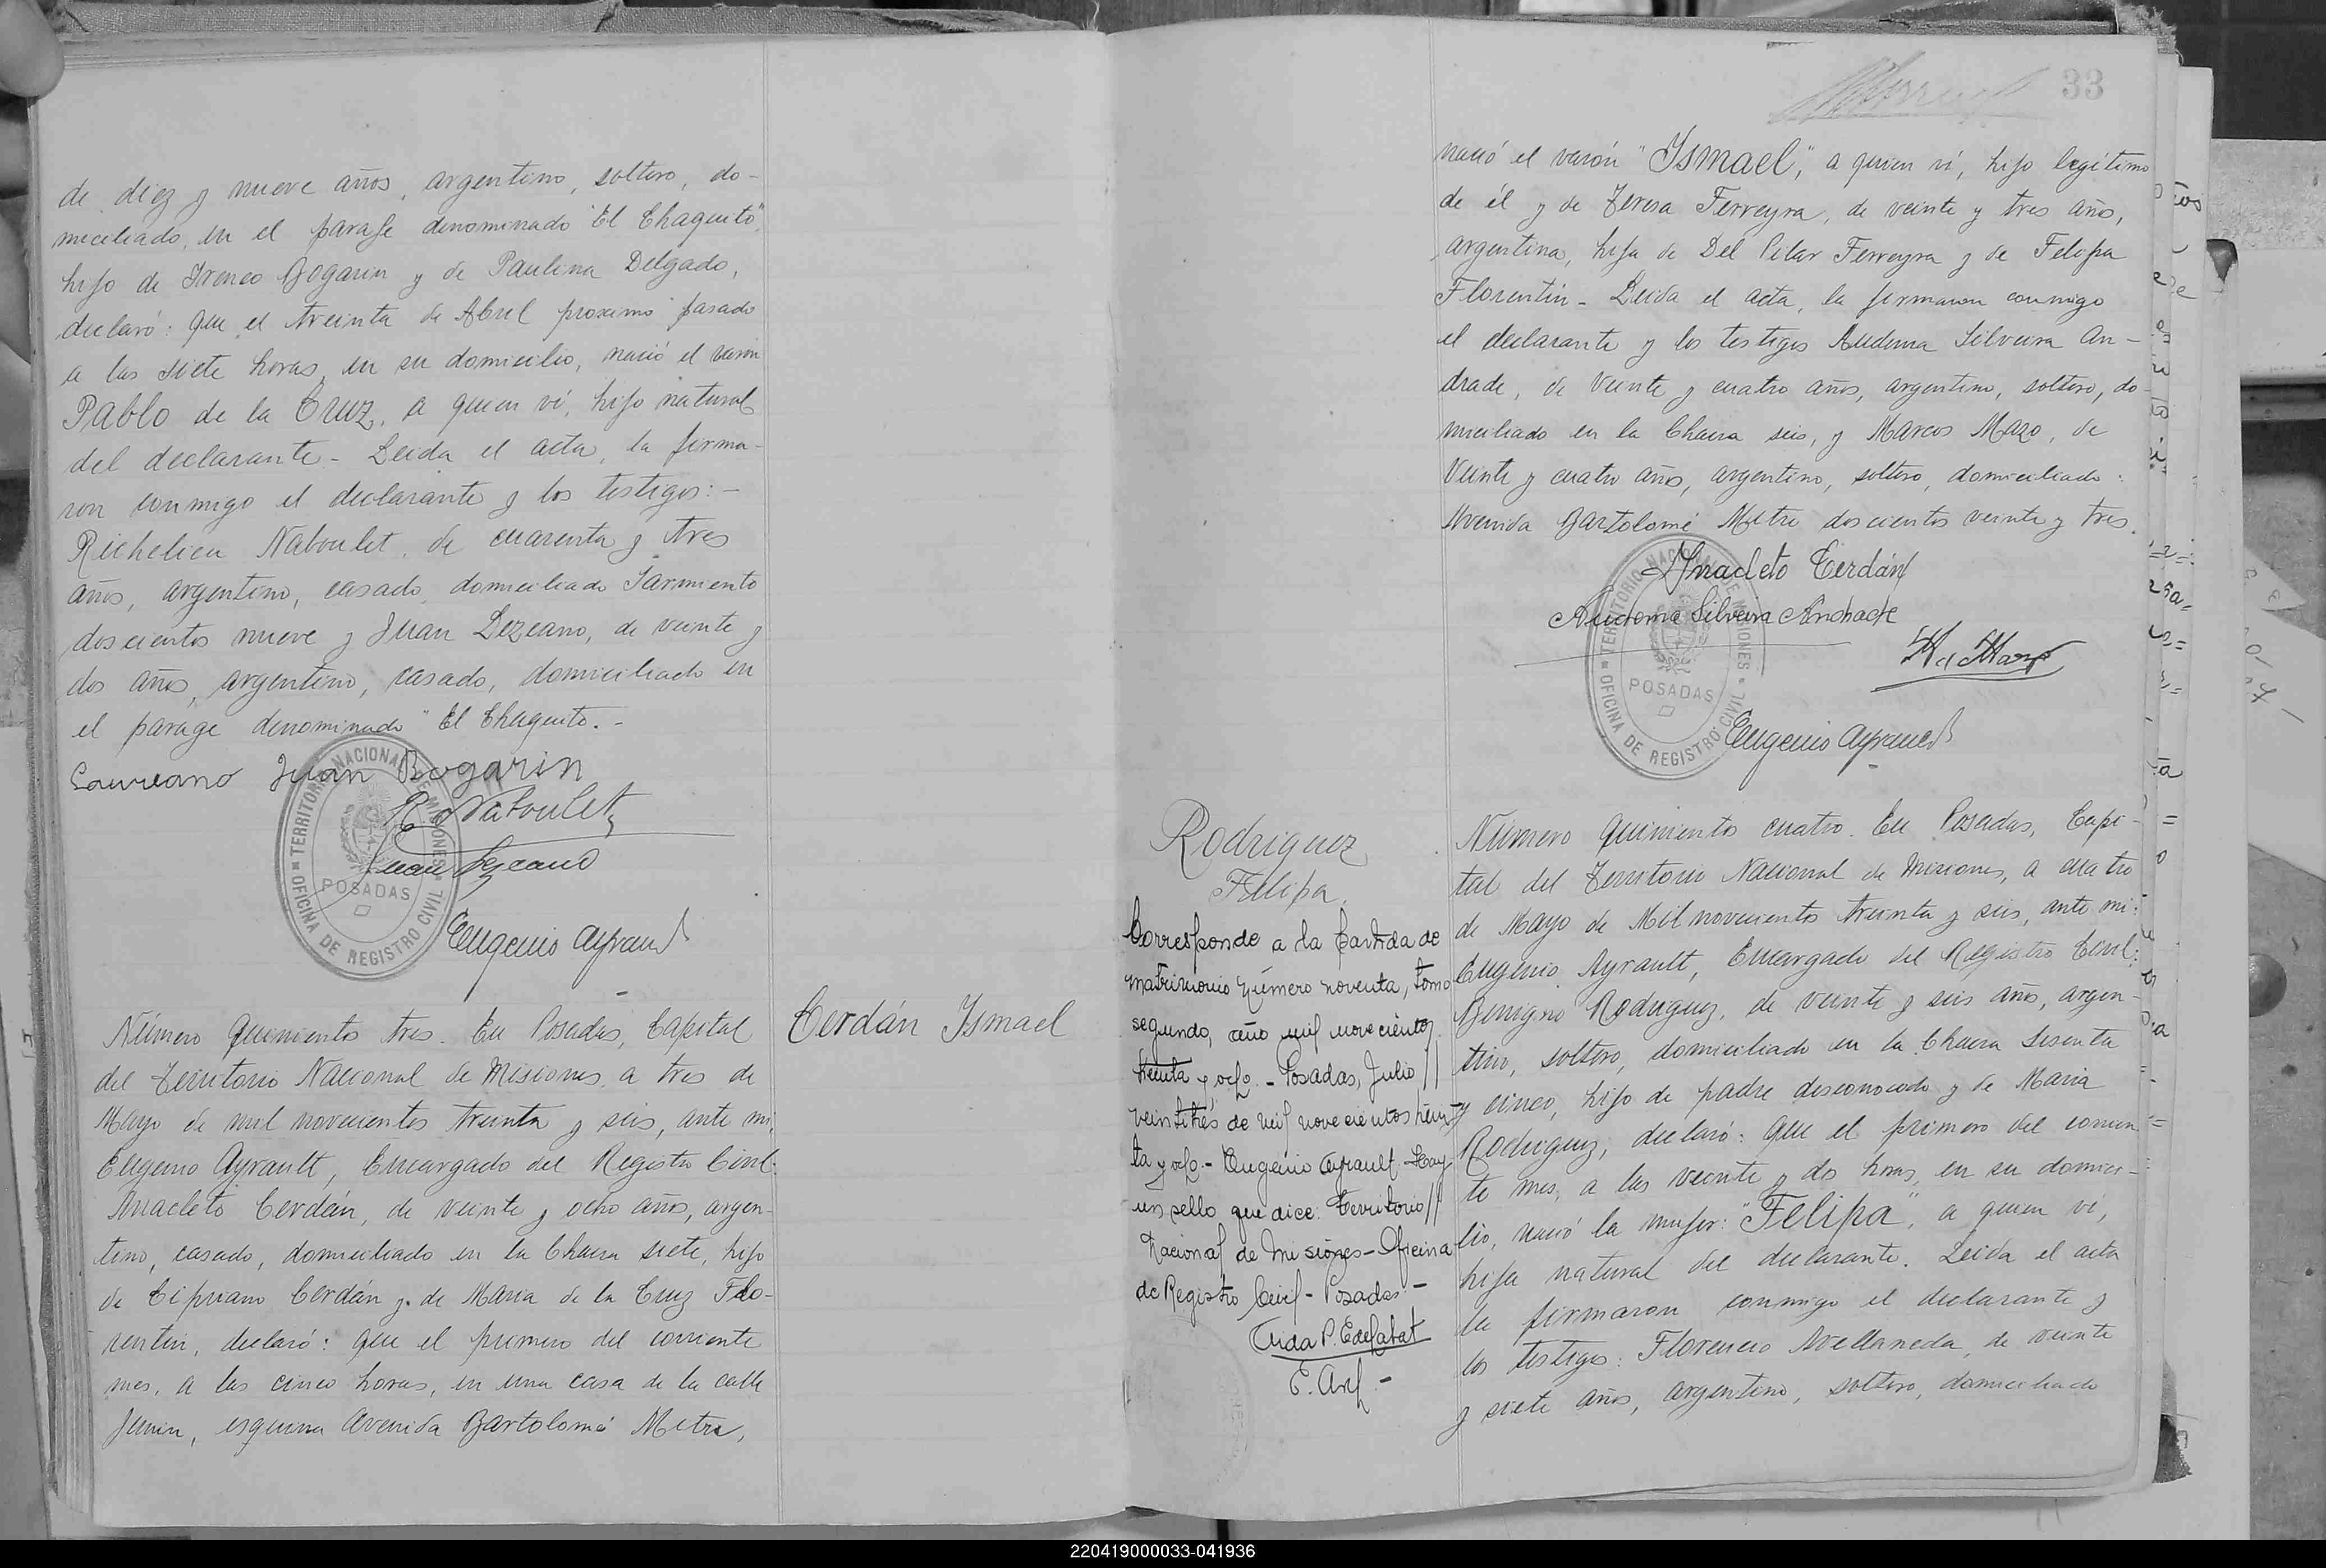 de diez y nueve años, argentino, soltero, do-
miciliado, en el parage denominado "El Chaquito",
hijo de Ireneo Bogarin y de Paulina Delgado,
declaró: que el treinta de Abril proximo pasado
a las siete horas, en su domicilio, nació el varon
Pablo de la Cruz, a quien ví, hijo natural
del declarante - Leida el acta, la firma-
ron conmigo el declarante y los testigos: -
Richelieu Naboulet, de cuarenta y tres
años, argentino, casado, domiciliado Sarmiento
doscientos nueve y Juan Lezcano, de veinte y
dos años, argentino, casado, domiciliado en
el parage denominado "El Chaquito. -
Laureano Juan Bogarin
R. Naboulet
Juan Lezcano
TERRITORIO NACIONAL DE MISIONES
POSADAS
OFICINA DE REGISTRO CIVIL
Eugenio Ayrault
Cerdán Ismael
Número quiniento tres. En Posadas, Capital
del Territorio Nacional de Misiones, a tres de
Mayo de mil novecientos treinta y seis, ante mi,
Eugenio Ayrault, Encargado del Registro Civil:
Anacleto Cerdán, de veinte y ocho años, argen-
tino, casado, domiciliado en la Chacra siete, hijo
de Cipriano Cerdán y de Maria de la Cruz Flo-
rentin, declaró: que el primero del corriente
mes, a las cinco horas, en una casa de la calle
Junin, esquina Avenida Bartolomé Mitre,
33
nació el varón "Ismael", a quien ví, hijo legítimo
de él y de Teresa Ferreyra, de veinte y tres años,
argentina, hija de Del Pilar Ferreyra y de Felipa
Florentin - Leida el acta, la firmaron conmigo
el declarante y los testigos Audoma Silveira An-
drade, de veinte y cuatro años, argentino, soltero, do-
miciliado en la Chacra seis, y Marcos Mazo, de
veinte y cuatro años, argentino, soltero, domiciliado:
Avenida Bartolomé Mitre doscientos veinte y tres.
Anacleto Cerdán
Audoma Silveira Andrade
TERRITORIO NACIONAL DE MISIONES
POSADAS
OFICINA DE REGISTRO CIVIL
Eugenio Ayrault
Rodriguez
Felipa.
Corresponde a la partida de
matrimonio número noventa, tomo
segundo, año mil novecientos
treinta y ocho. - Posadas, Julio //
veintitrés de mil novecientos trein-
ta y ocho - Eugenio Ayrault - Hay
un sello que dice: Territorio //
Nacional de Misiones - Oficina
de Registro Civil - Posadas -
Número quiniento cuatro. En Posadas, Capi-
tal del Territorio Nacional de Misiones, a cuatro
de Mayo de Mil novecientos treinta y seis, ante mi:
Eugenio Ayrault, Encargado del Registro Civil:
Benigno Rodriguez, de veinte y seis años, argen-
tino, soltero, domiciliado en la Chacra sesenta
y cinco, hijo de padre desconocido y de Maria
Rodriguez, declaró: que el primero del corrien-
te mes, a las veinte y dos horas, en su domici-
lio, nació la mujer: "Felipa", a quien ví,
hija natural del declarante. Leida el acta
la firmaron conmigo el declarante y
los testigos: Florencio Avellaneda, de veinte
y siete años, argentino, soltero, domiciliado
220419000033-041936